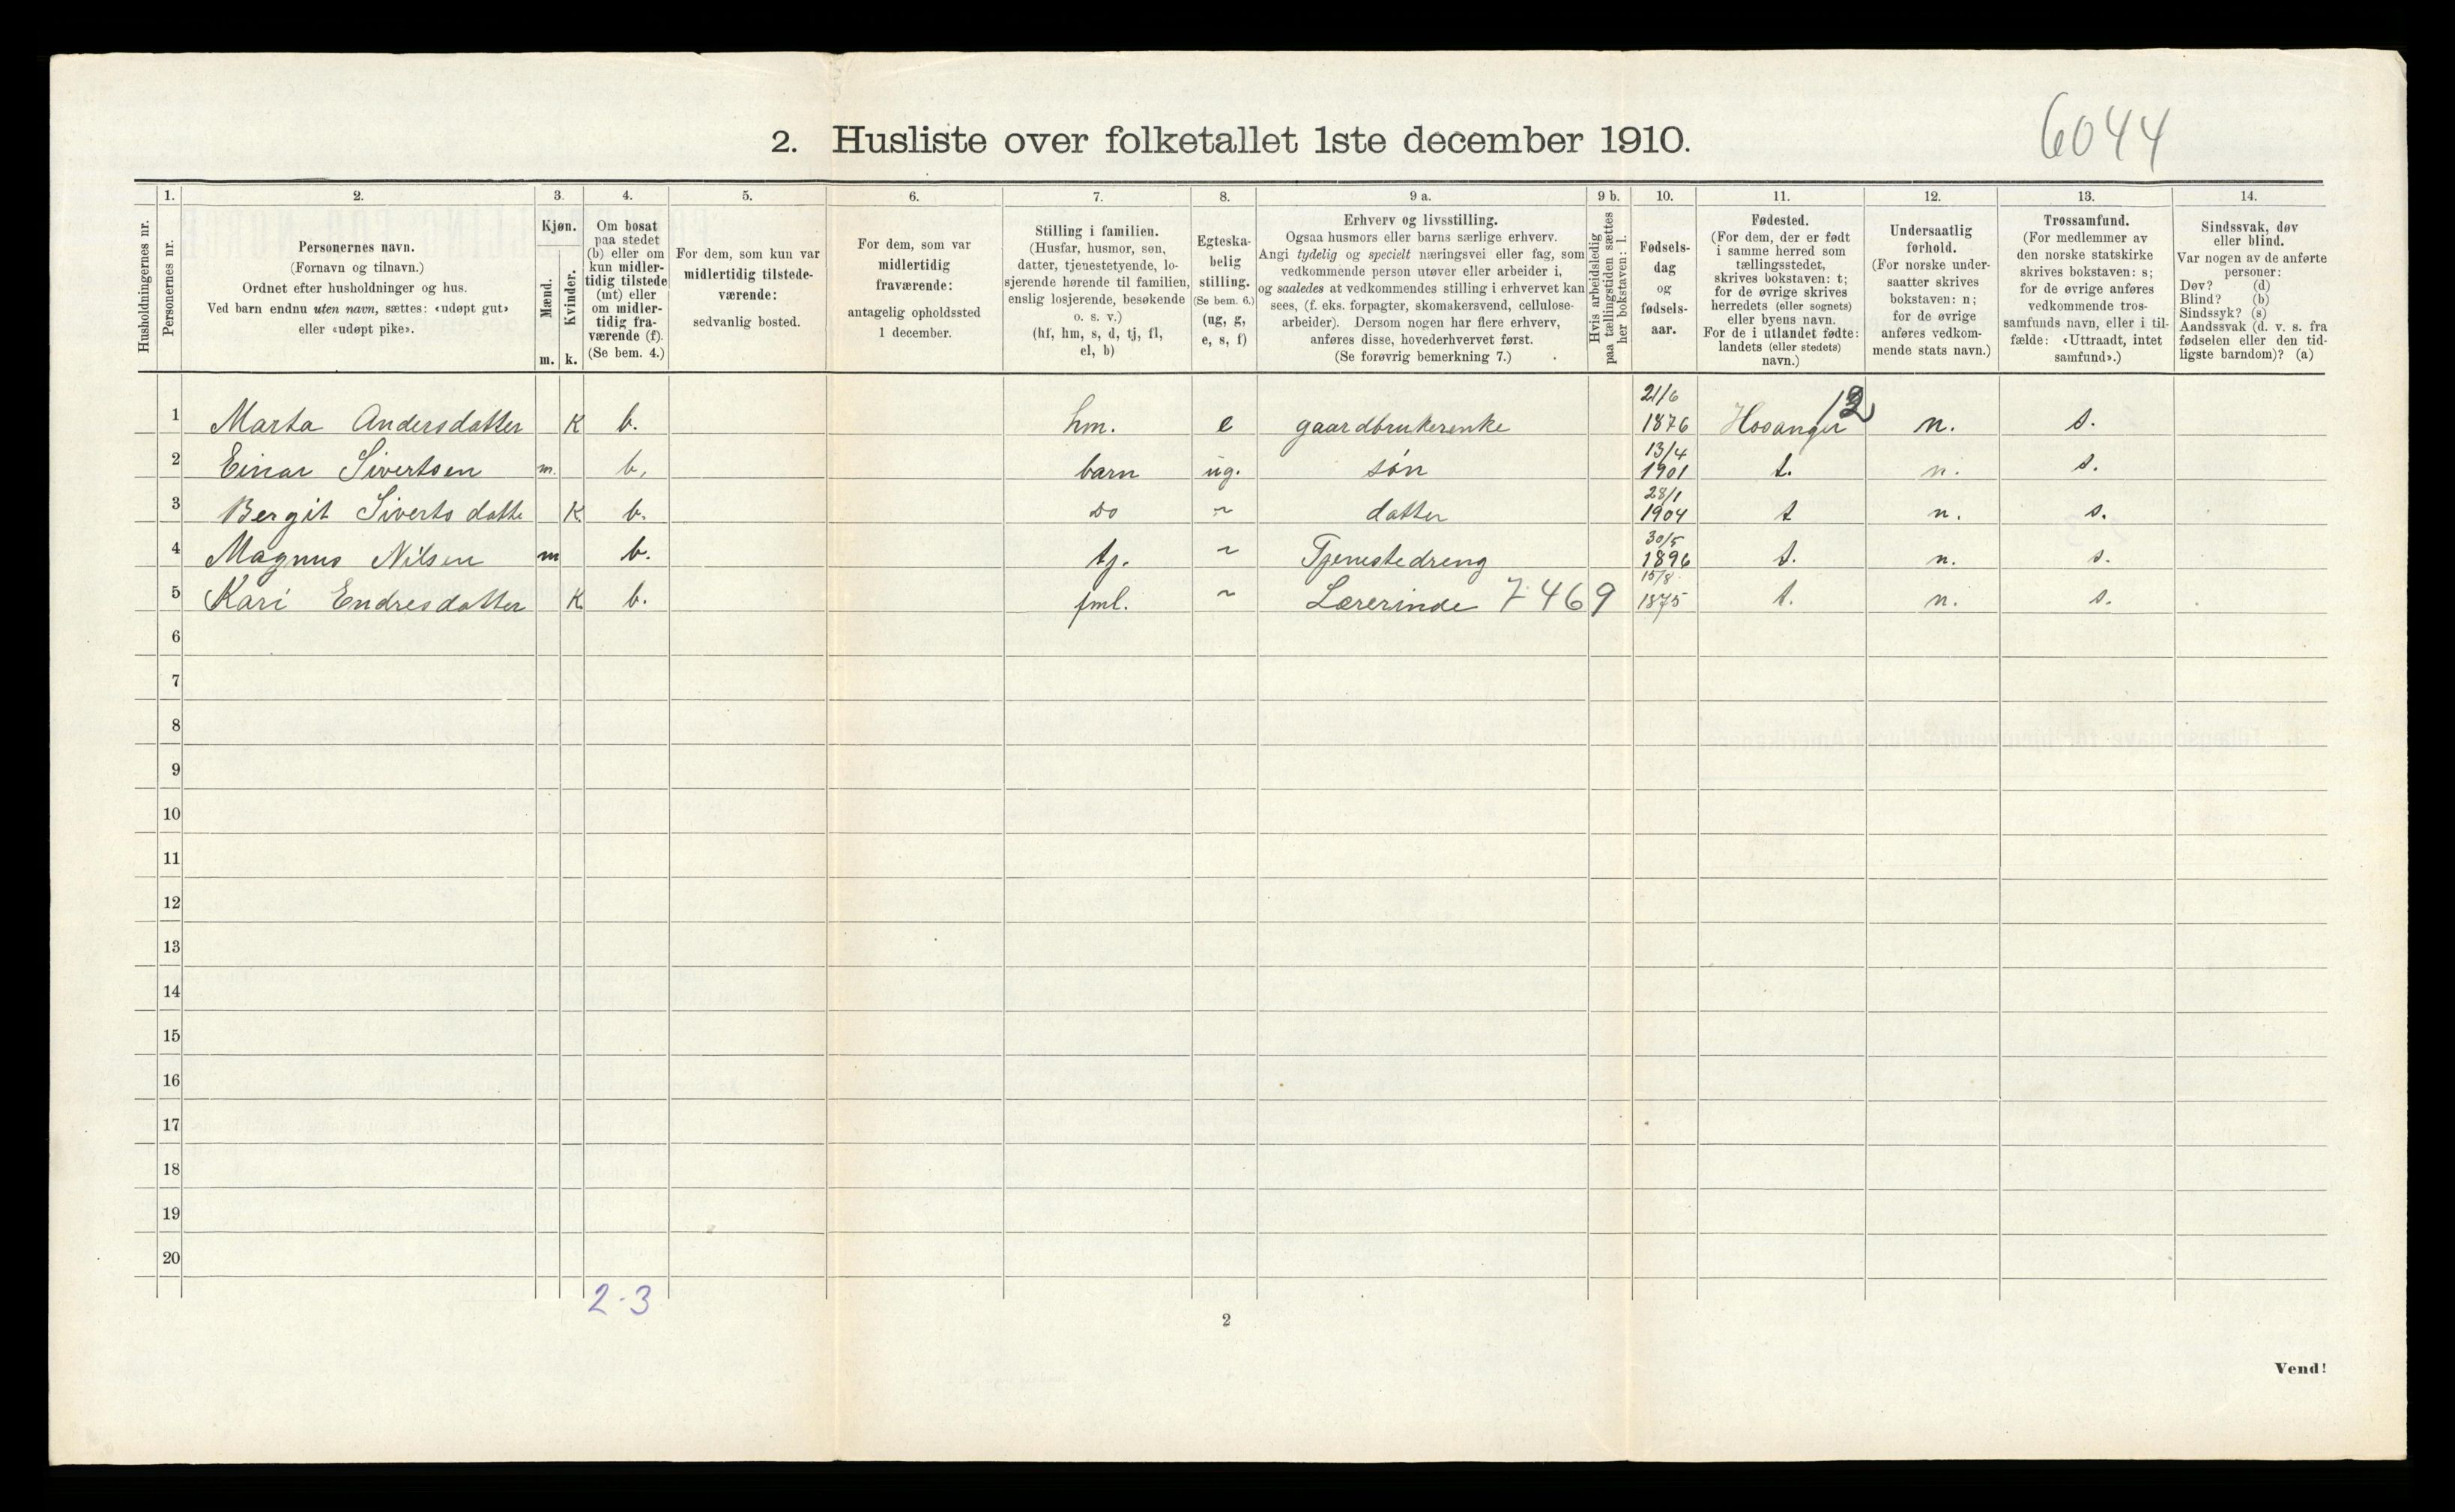 6044
2. Husliste over folketallet 1ste december 1910.
1. 2. 3. 4. 5. 6. 7. 8. 9 a. 9 b. 10. 11. 12. 13. 14.
Husholdningernes nr.
Personernes nr.
Personernes navn.
(Fornavn og tilnavn.)
Ordnet efter husholdninger og hus.
Ved barn endnu uten navn, sættes: «udøpt gut»
eller «udøpt pike».
Kjøn.
Mænd.
Kvinder.
m. k.
Om bosat
paa stedet
(b) eller om
kun midler-
tidig tilstede
(mt) eller
om midler-
tidig fra-
værende (f).
(Se bem. 4.)
For dem, som kun var
midlertidig tilstede-
værende:
sedvanlig bosted.
For dem, som var
midlertidig
fraværende:
antagelig opholdssted
1 december.
Stilling i familien.
(Husfar, husmor, søn,
datter, tjenestetyende, lo-
sjerende hørende til familien,
enslig losjerende, besøkende
o. s. v.)
(hf, hm, s, d, tj, fl,
el, b)
Egteska-
belig
stilling.
(Se bem. 6.)
(ug, g,
e, s, f)
Erhverv og livsstilling.
Ogsaa husmors eller barns særlige erhverv.
Angi tydelig og specielt næringsvei eller fag, som
vedkommende person utøver eller arbeider i,
og saaledes at vedkommendes stilling i erhvervet kan
sees, (f. eks. forpagter, skomakersvend, cellulose-
arbeider). Dersom nogen har flere erhverv,
anføres disse, hovederhvervet først.
(Se forøvrig bemerkning 7.)
Hvis arbeidsledig
paa tællingstiden sættes
her bokstaven: l.
Fødsels-
dag
og
fødsels-
aar.
Fødested.
(For dem, der er født
i samme herred som
tællingsstedet,
skrives bokstaven: t;
for de øvrige skrives
herredets (eller sognets)
eller byens navn.
For de i utlandet fødte:
landets (eller stedets)
navn.)
Undersaatlig
forhold.
(For norske under-
saatter skrives
bokstaven: n;
for de øvrige
anføres vedkom-
mende stats navn.)
Trossamfund.
(For medlemmer av
den norske statskirke
skrives bokstaven: s;
for de øvrige anføres
vedkommende tros-
samfunds navn, eller i til-
fælde: «Uttraadt, intet
samfund».)
Sindssvak, døv
eller blind.
Var nogen av de anførte
personer:
Døv? (d)
Blind? (b)
Sindssyk? (s)
Aandssvak (d. v. s. fra
fødselen eller den tid-
ligste barndom)? (a)
1 Marta Andersdatter K b. hm. e gaardbrukerenke 21/6 1876 Hosanger 12 n. s.
2 Einar Sivertsen m. b. barn ug. søn 13/4 1901 t. n. s.
3 Bergit Siverts datte K b. Do ~ datter 28/1 1904 t n. s.
4 Magnus Nilsen m b. tj. ~ Tjenestedreng 30/5 1896 t. n. s.
5 Kari Endresdatter K b. fml. ~ Lærerinde 7469 15/8 1875 t. n. s.
6
7
8
9
10
11
12
13
14
15
16
17
18
19
20
2-3
2
Vend!